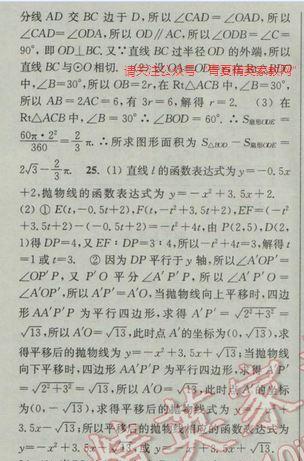 分线 AD 交 BC 边于 D,所以∠CAD=∠OAD,所以
∠CAD=∠ODA,所以 OD∥AC,所以∠ODB=∠C=
90°,即 OD⊥BC.又∵直线 BC 过半径 OD 的外端,所以
直线 BC 与⊙O 相切.
中,∠B=30°,所以 OB=2r,在 Rt△ACB 中,∠B=30°,
所以 AB=2AC=6,有 3r=6,解得 r=2. (3) 在
Rt△ACB 中,∠B=30°∴∠BOD=60°. ∴S扇形ODE=
60π·2²/360=2/3π. ∴所求图形面积为 S△BOD-S扇形ODE=
2√3-2/3π. 25. (1) 直线 l 的函数表达式为 y=-0.5x
+2,抛物线的函数表达式为 y=-x²+3.5x+2.
(2) ① E(t,-0.5t+2),F(t,-t²+3.5t+2),EF=(-t²
+3.5t+2)-(-0.5t+2)=-t²+4t,由 P(2,5),D(2,
1)得 DP=4,又 EF:DP=3:4,所以-t²+4t=3,解得 t
=1 或 t=3. ② 因为 DP 平行于 y 轴,所以∠A'OP'=
∠OP'P,又 P'O 平分∠A'P'P,所以∠A'P'O=
∠A'OP',所以 A'P'=A'O,当抛物线向上平移时,四边
形 AA'P'P 为平行四边形,求得 A'P'=√2²+3²=
√13,所以 A'O=√13,此时点 A'的坐标为(0,√13),求
得平移后的抛物线为 y=-x²+3.5x+√13;当抛物线
向下平移时,四边形 AA'P'P 为平行四边形,求得 A'P'
=√2²+3²=√13,所以 A'O=√13,此时点 A'的坐标
为(0,-√13),求得平移后的抛物线为 y=-x²+
3.5x-√13;所以平移后的抛物线相应的函数表达式为
y=-x²+3.5x-√13,或 y=-x²+3.5x+√13.